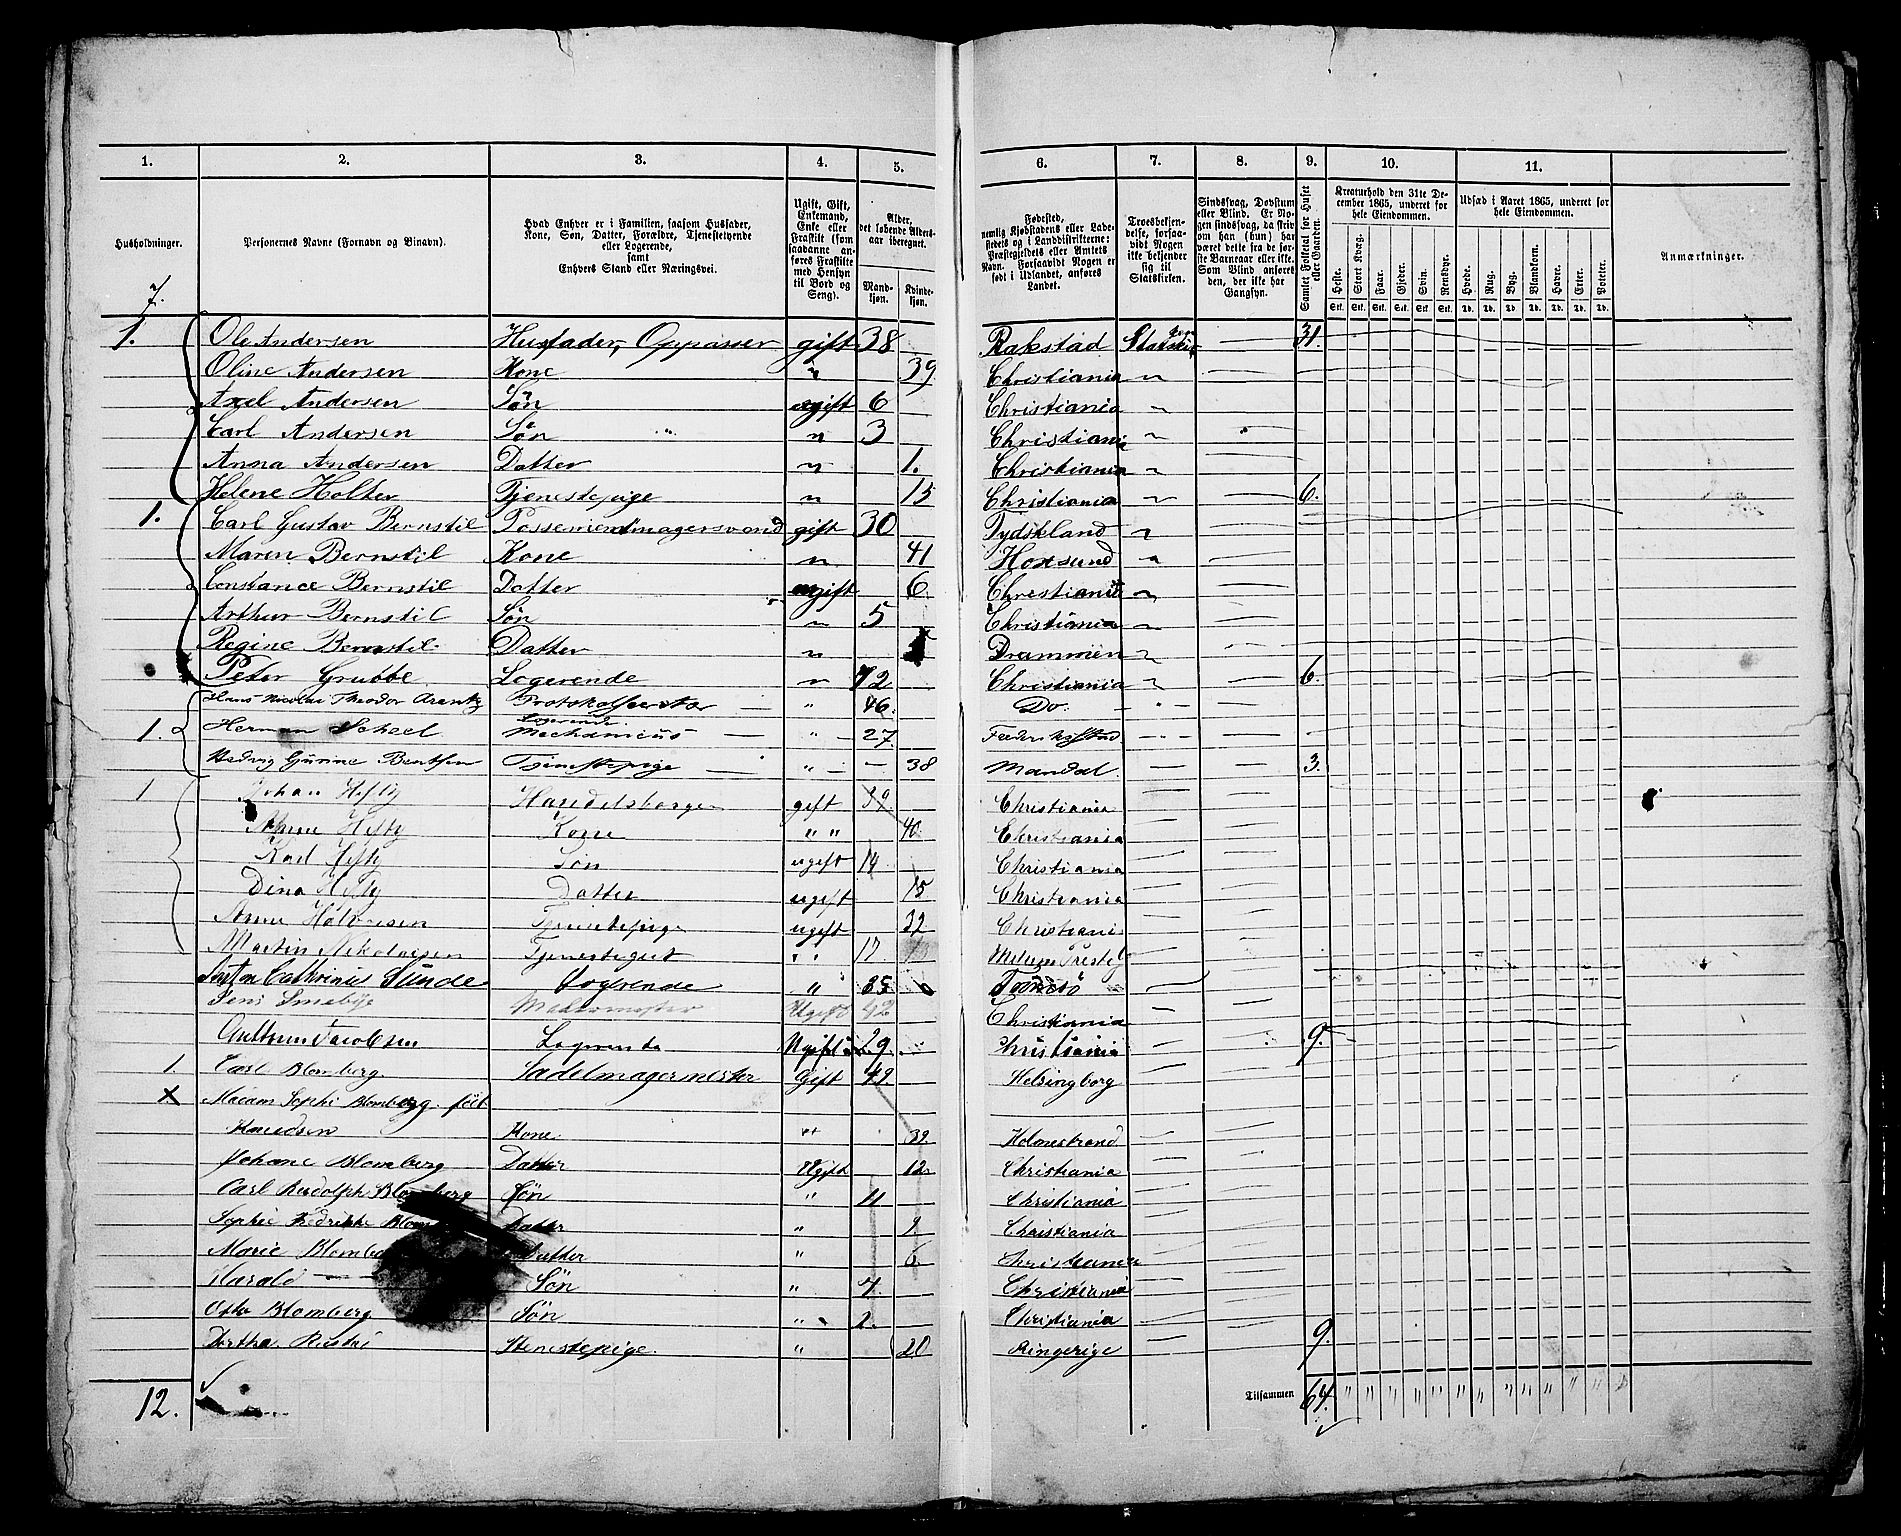 1. 2. 3. 4. 5. 6. 7. 8. 9. 10. 11.
Husholdninger.
Personernes Navne (Fornavn og Binavn).
Hvad Enhver er i Familien, saasom Husfader, Kone, Søn, Datter, Forældre, Tjenestetyende eller Logerende, samt Enhvers Stand eller Næringsvei.
Ugift, Gift, Enkemand, Enke eller Fraskilt (som saadanne anføres Fraskilte med Hensyn til Bord og Seng).
Alder, det løbende Aldersaar iberegnet.
Mandkjøn. Kvindekjøn.
Fødested, nemlig Kjøbstadens eller Ladestedets og i Landdistrikterne: Præstegjeldets eller Amtets Navn. Forsaavidt Nogen er født i Udlandet, anføres Landet.
Troesbekjendelse, forsaavidt Nogen ikke bekjender sig til Statskirken.
Sindssvag, Døvstum eller Blind. Er Nogen sindssvag, da skriv om han (hun) har været dette fra de første Barneaar eller ikke. Som Blind anføres den, der ikke har Gangsyn.
Samlet Folketal for Huset eller Gaarden.
Kreaturhold den 31te December 1865, underet for hele Eiendommen.
Heste. Stort Kvæg. Faar. Gjeder. Svin. Rensdyr.
Stk. Stk. Stk. Stk. Stk. Stk.
Udsæd i Aaret 1865, underet for hele Eiendommen.
Hvede. Rug. Byg. Blandkorn. Havre. Erter. Poteter.
Td. Td. Td. Td. Td. Td. Td.
Anmærkninger.
7.
1. Ole Andersen Husfader, Oppasser gift 38 Rakstad Statskirken 31.
Oline Andersen Kone " 39 Christiania "
Axel Andersen Søn ugift 6 Christiania "
Carl Andersen Søn " 3 Christiania "
Anna Andersen Datter " 1. Christiania "
Helene Holter Tjenestepige " 15 Christiania " 6.
1. Carl Gustav Bernstil gift 30 Tydskland "
Maren Bernstil Kone " 41 Hoxsund "
Constance Bernstil Datter ugift 6 Christiania "
Arthur Bernstil Søn " 5 Christiania "
Regine Bernstil Datter " Drammen "
Peter Grubbe Logerende " 72 Christiania " 6.
Hans Nicolai Theodor " 46. Do. "
1. Herman Scheel Logerende Mechanicus " 27 Frederikstad
Hedvig Gurine Bentsen Tjenestepige " 38 Mandal 3.
1 Johan Hefty gift 39. Christiania
Hefty Kone " " 40. Christiania
Karl Hefty Søn ugift 14 Christiania
Dina Hefty Datter ugift 15 Christiania
Tjenestepige ugift 32 Christiania
Martin " 17
Cathrinus Sunde Logerende " 35
Jens Smebye Ugift 42 Christiania
Jacobsen Logerende Ugift 29. Christiania 9.
1. Carl Blomberg Sadelmagermester Gift 49. Helsingborg
X Sophi Blomberg født
Knudsen Kone " 39. Holmestrand
Johane Blomberg Datter Ugift 12 Christiania
Carl Rudolph Blomberg Søn " 11 Christiania
Sophie Fredrikke Datter " 9. Christiania
Marie Datter " 6. Christiania
Harald — Søn " 4. Christiania
Otto Blomberg Søn " 2. Christiania
Tienestepige. " 20 Ringerige 9.
12. Tilsammen 64.